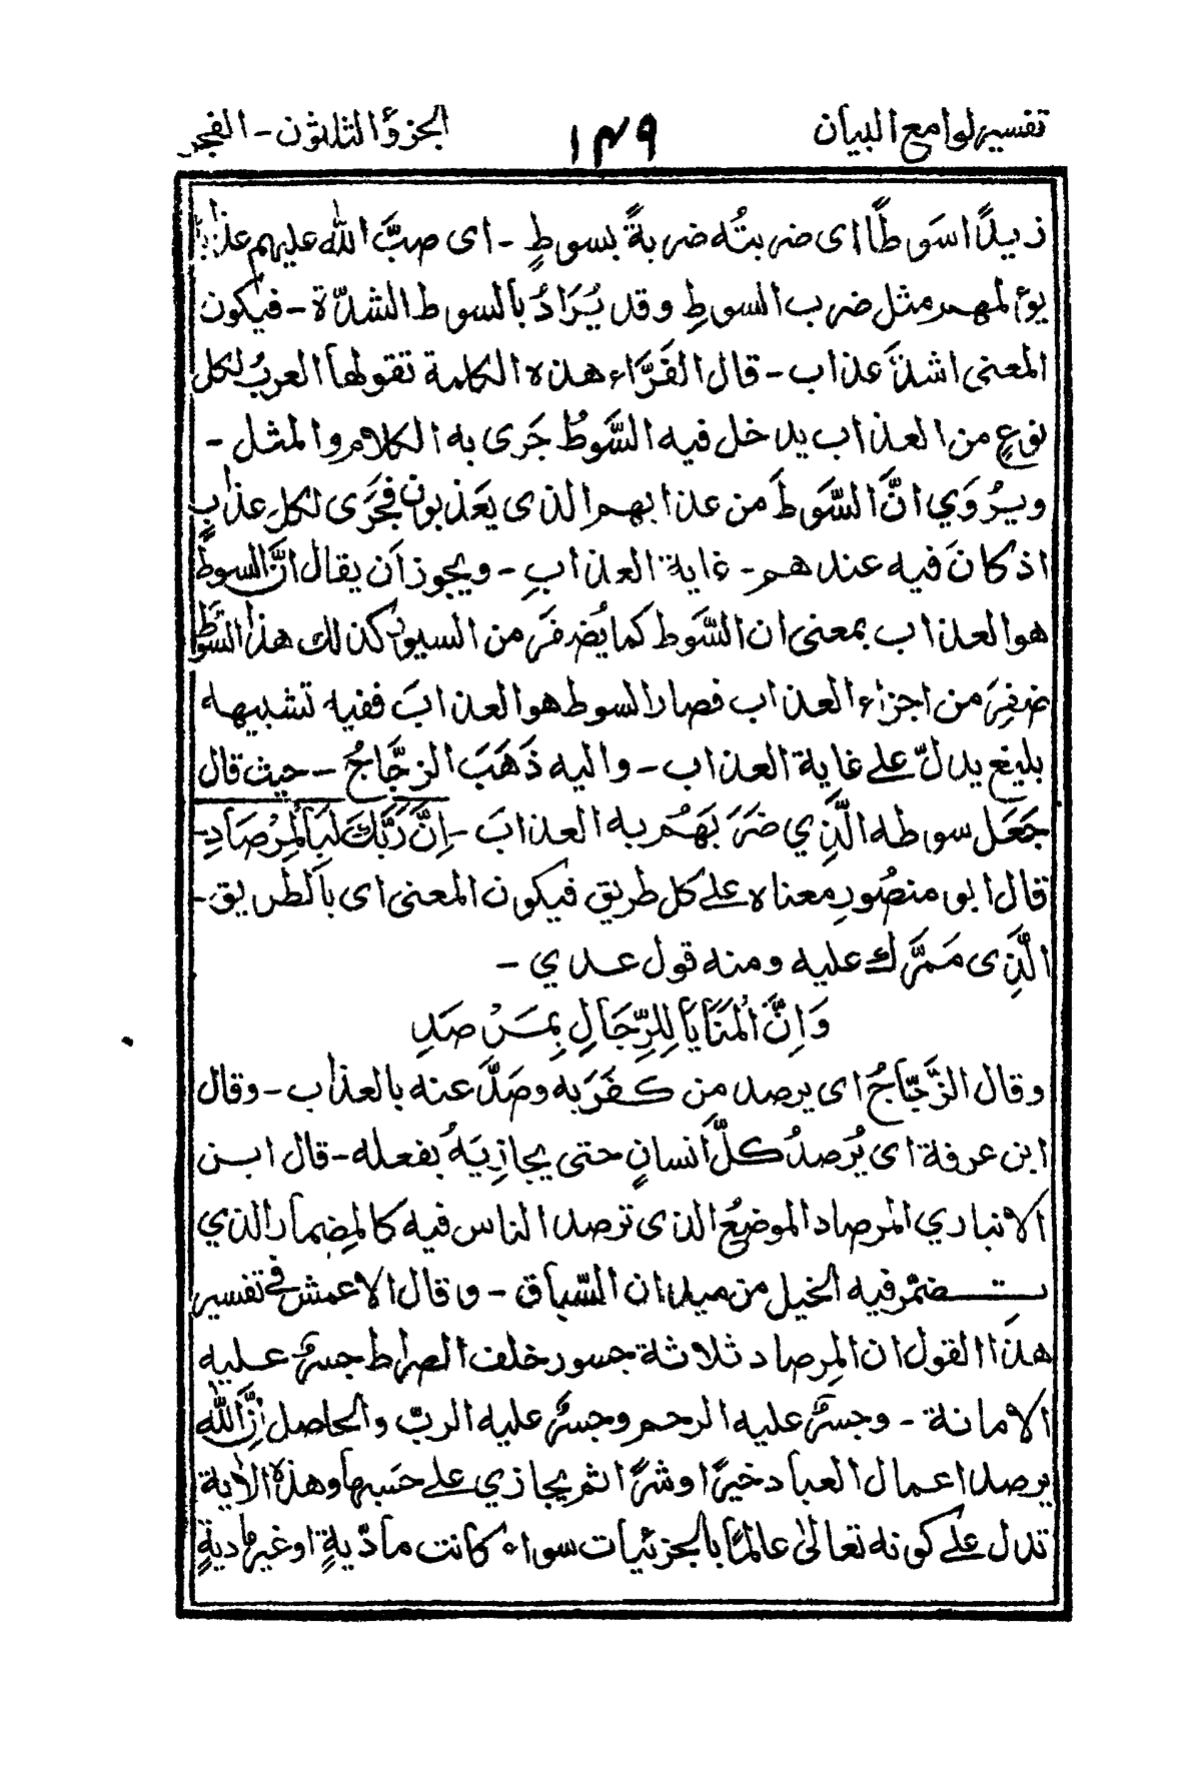 تفسير لوامع البيان ١٣٩ الجزؤ الثلثون - الفجر
زيدًا سَوطًا اى ضربتُه ضربةً بسوطٍ - اى صبَّ الله عليهم عذابًا
يؤلمهم مثل ضرب السوطِ وقد يُرَادُ بالسوط الشدّة - فيكون
المعنى اشدَّ عذاب - قال الفَرَّاء هذه الكلمة تقولها العربُ لكل
نوعٍ من العذاب يدخل فيه السَّوطُ جَرَى به الكلام والمثل -
ويُرْوَي انَّ السَّوطَ من عذابهم الذى يعَذبون فجَرَى لكل عذابٍ
اذ كانَ فيه عندهم - غاية العذابِ - ويجوز اَن يقال انَّ السوطَ
هو العذاب بمعنى ان السَّوط كما يُضفَرَ من السيور كذلك هذا السَّوطُ
ضفِرَ من اجزاء العذاب فصار السوط هو العذابَ ففيه تشبيه
بليغ يدلّ على غاية العذاب - واليه ذَهَبَ الزجَّاجُ - حيث قال
جَعَل سوطه الَّذِي ضَرَبَهُم به العذابَ - اِنَّ رَبَّكَ لَبِالْمِرْصَادِ -
قال ابو منصُورِ معناه على كل طريق فيكون المعنى اى بالطريق -
الَّذِى مَمَرَّك عليه ومنه قول عدي -
وَاِنَّ الْمَنَايَا لِلرِّجَالِ بِمَرْصَدِ
وقال الزَّجَّاجُ اى يرصد من كفَرَ به وصَدَّ عنه بالعذاب - وقال
ابن عرفة اى يُرْصدُ كلَّ اَنسانٍ حتى يجازِيَهُ بفعله - قال ابن
الانباري المرصاد الموضعُ الذى ترصد الناس فيه كالمِضمار الذي
يتضمّر فيه الخيل من ميدان السّباق - وقال الاعمش فى تفسير
هذَا القول ان المِرصاد ثلاثة جسور خلف الصراط جسرٌ عليه
الامانة - وجسرٌ عليه الرحم وجسرٌ عليه الربّ والحاصل اِنَّ الله
يرصد اعمال العباد خيرًا وشرًا ثم يجازي على حَسبها وهذه الاٰية
تدل على كونه تعالىٰ عالمًا بالجزئيات سواء كانت مادّيةٍ اوغير ماديةٍ